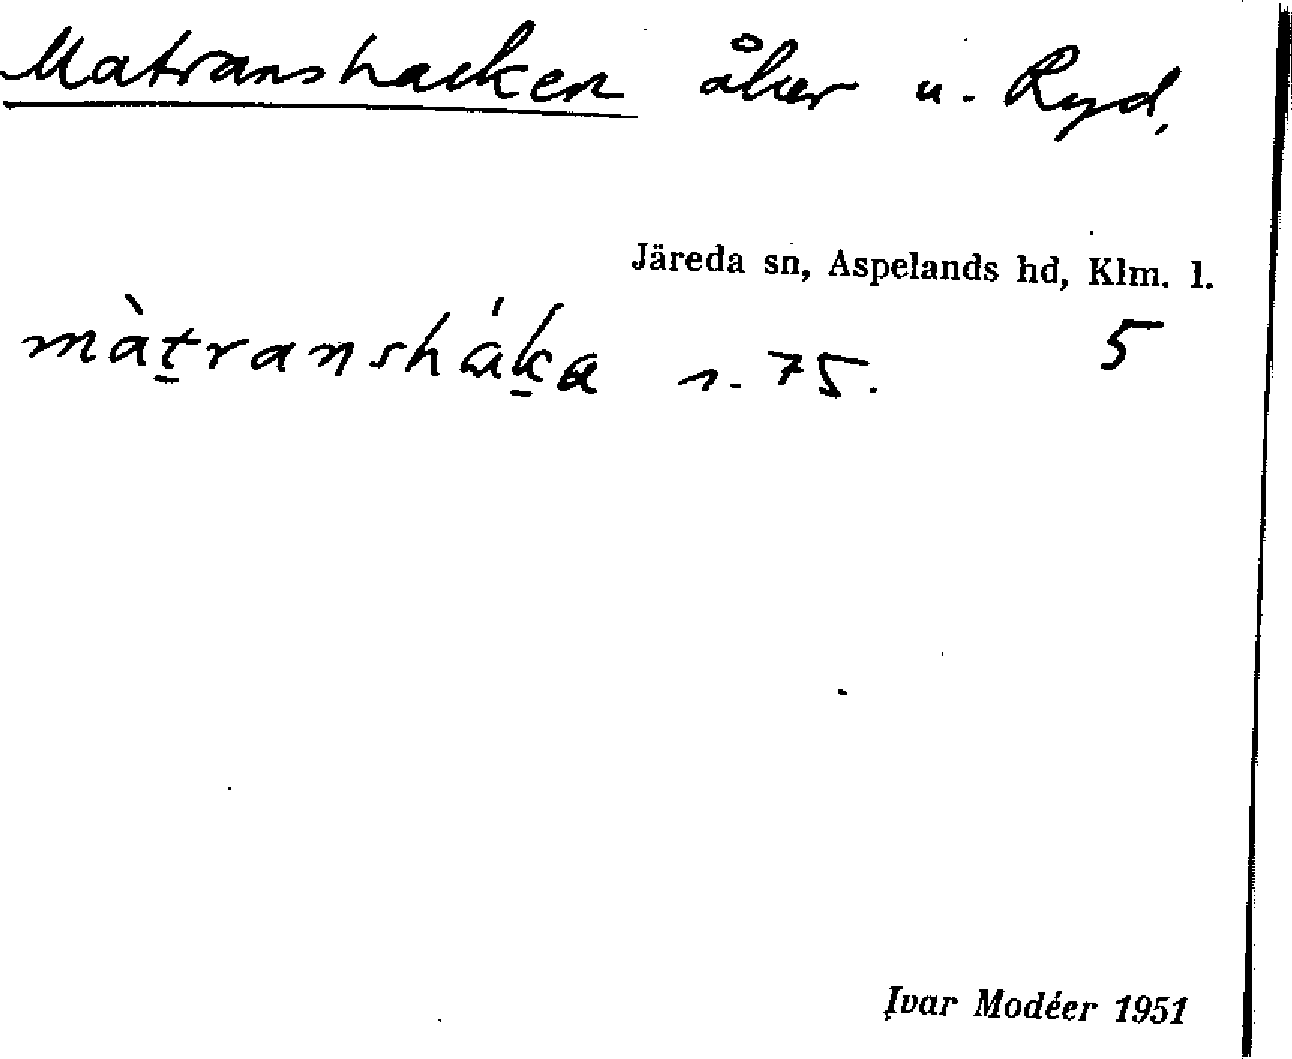 Matranshacken åker u. Ryd,
Järeda sn, Aspelands hd, Klm. l.
màt̠ranshák̠a s. 75. 5
Ivar Modéer 1951